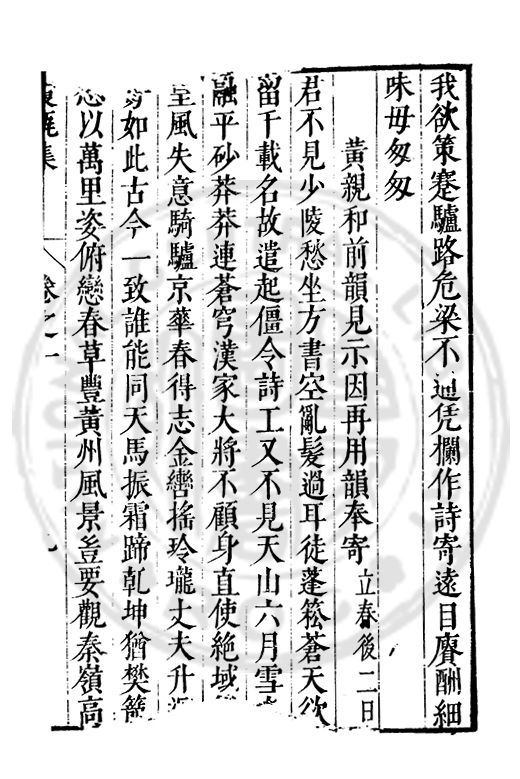 我欲策蹇驢路危梁不通凭欄作詩寄遠目賡酬細
味毋匆匆
黃親和前韻見示因再用韻奉寄立春後二日
君不見少陵愁坐方書空亂髮過耳徒蓬鬆蒼天欲
留千載名故遣起僵令詩工又不見天山六月雪
融平砂莽莽連蒼穹漢家大將不顧身直使絕域
風失意騎驢京華春得志金轡搖玲瓏丈夫升
如此古今一致誰能同天馬振霜蹄乾坤猶樊籠
以萬里姿俯戀春草豐黃州風景豈要觀秦嶺高
集 卷之一 九